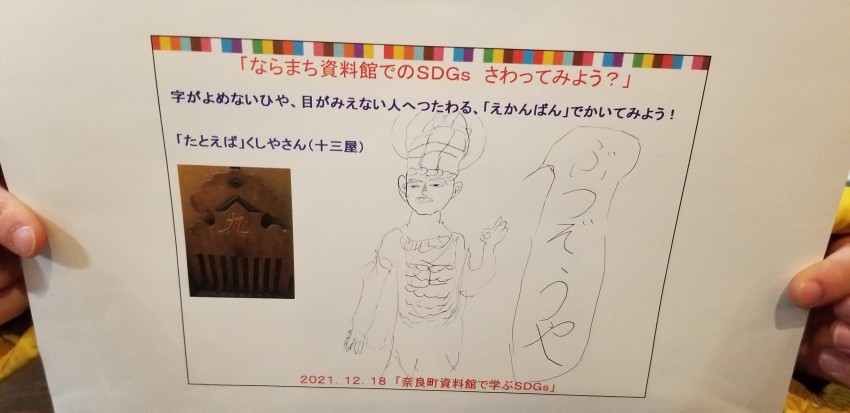 「ならまち資料館でのSDGs さわってみよう?」
字がよめないひや、目がみえない人へつたわる、「えかんばん」でかいてみよう!
「たとえば」くしやさん(十三屋)
九
ぶつぞうや
2021.12.18 「奈良町資料館で学ぶSDGs」